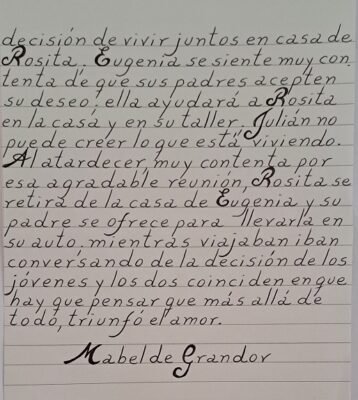 decisión de vivir juntos en casa de
Rosita. Eugenia se siente muy con
tenta de que sus padres acepten
su deseo: ella ayudará a Rosita
en la casa y en su taller. Julián no
puede creer lo que está viviendo.
Al atardecer, muy contenta por
esa agradable reunión, Rosita se
retira de la casa de Eugenia y su
padre se ofrece para llevarla en
su auto. mientras viajaban iban
conversando de la decisión de los
jóvenes y los dos coinciden en que
hay que pensar que más allá de
todo, triunfó el amor.
Mabel de Grandov